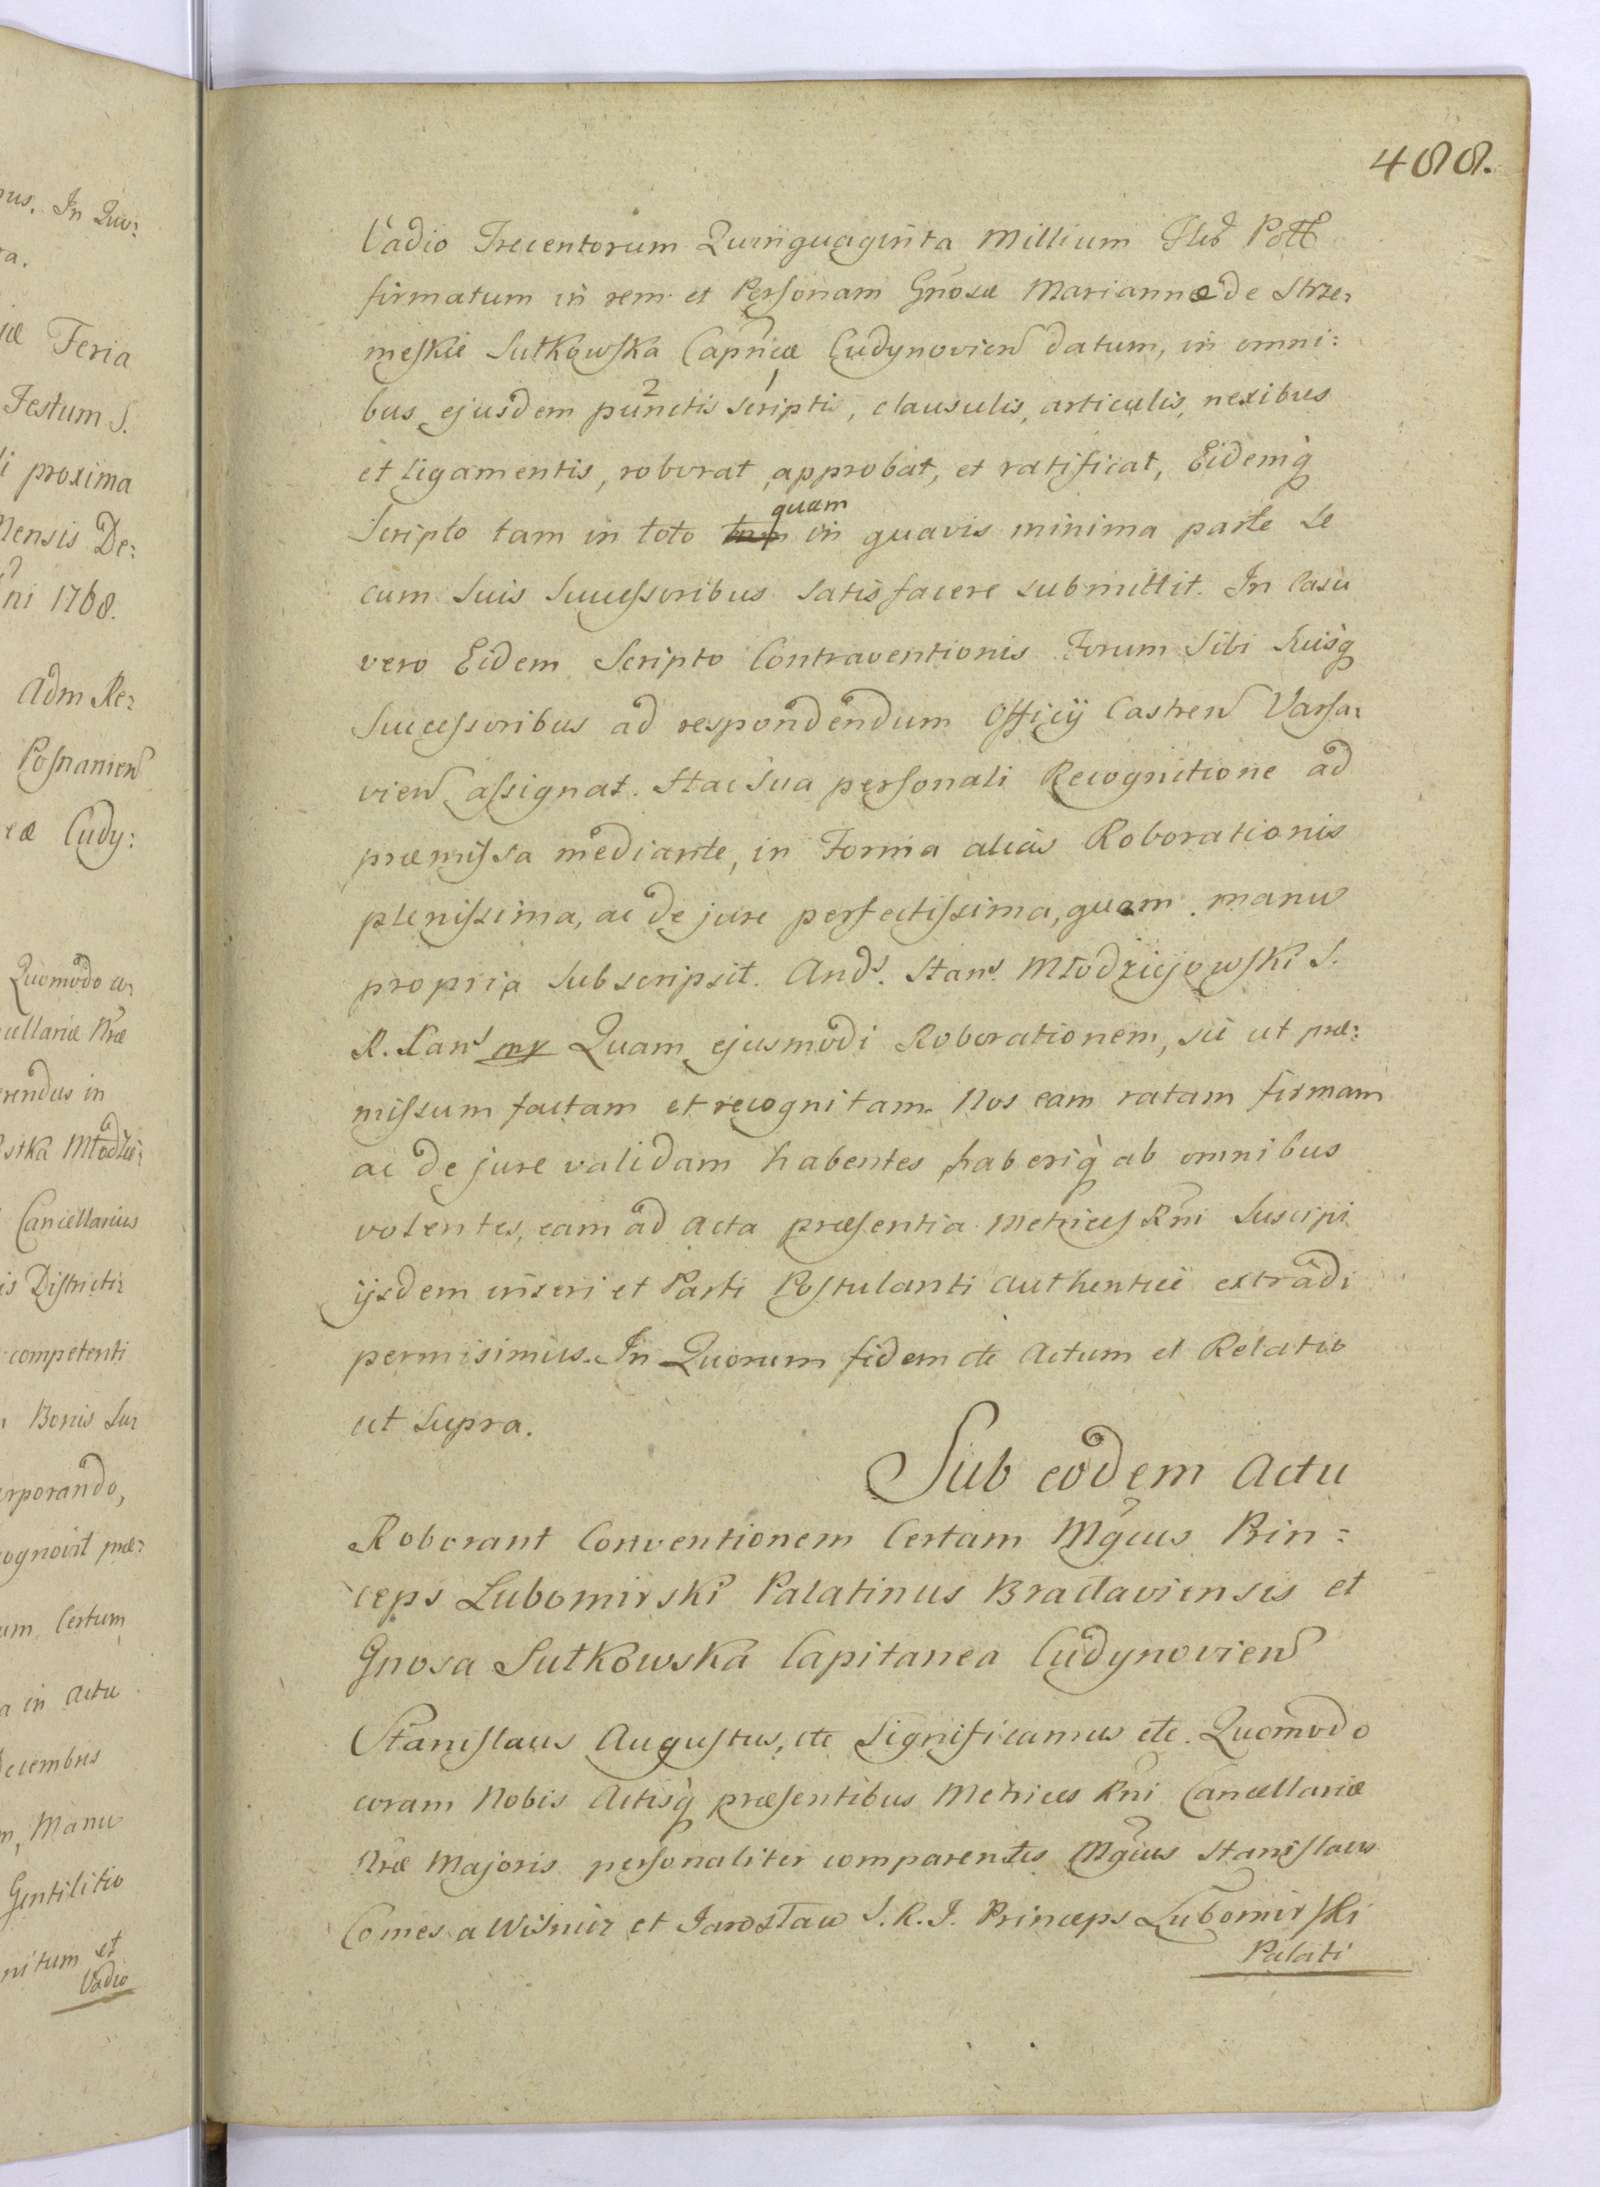 488.
Vadio Trecentorum Quinquaginta Millium Flor Poll
firmatum in rem et Personam Gnosæ Mariannæ de Strze:
meskie Sułkowska Capneæ Cudynovien datum, in omni:
bus ejusdem punctis scriptis, clausulis, articulis, nexibus
et ligamentis, roborat, approbat, et ratificat, Eidemq
Scripto tam in toto quam in quavis minima parte Se
cum Suis Successoribus Satisfacere submittit. In Casu
vero Eidem Scripto Contraventionis Forum Sibi Suisq
Successoribus ad respondendum Officij Castren Varsa:
vien assignat. Hac Sua personali Recognitione ad
præmissa mediante, in Forma alias Roborationis
plenissima, ac de jure perfectissima, quam manu
propria Subscripsit. Ands. Stans. Młodziejowski S.
R. Kans mp Quam ejusmodi Roborationem, sic ut præ:
missum factam et recognitam. Nos eam ratam firmam
ac de jure validam habentes haberiq ab omnibus
volentes, eam ad Acta præsentia Metrices Rni Suscipi
ijsdem inseri et Parti Postulanti authentice extradi
permisimus. In Quorum fidem etc Actum et Relatio
ut Supra.
Sub eodem Actu
Roborant Conventionem Certam Mgcus Prin:
ceps Lubomirski Palatinus Braclaviensis et
Gnosa Sułkowska Capitanea Cudynovien
Stanislaus Augustus, etc Significamus etc. Quomodo
coram Nobis Actisq præsentibus Metrices Rni Cancellariæ
Nræ Majoris personaliter comparentes Mgcus Stanislaus
Comes a Wisnicz et Jarosław S. R. I. Princeps Lubomirski
Palati